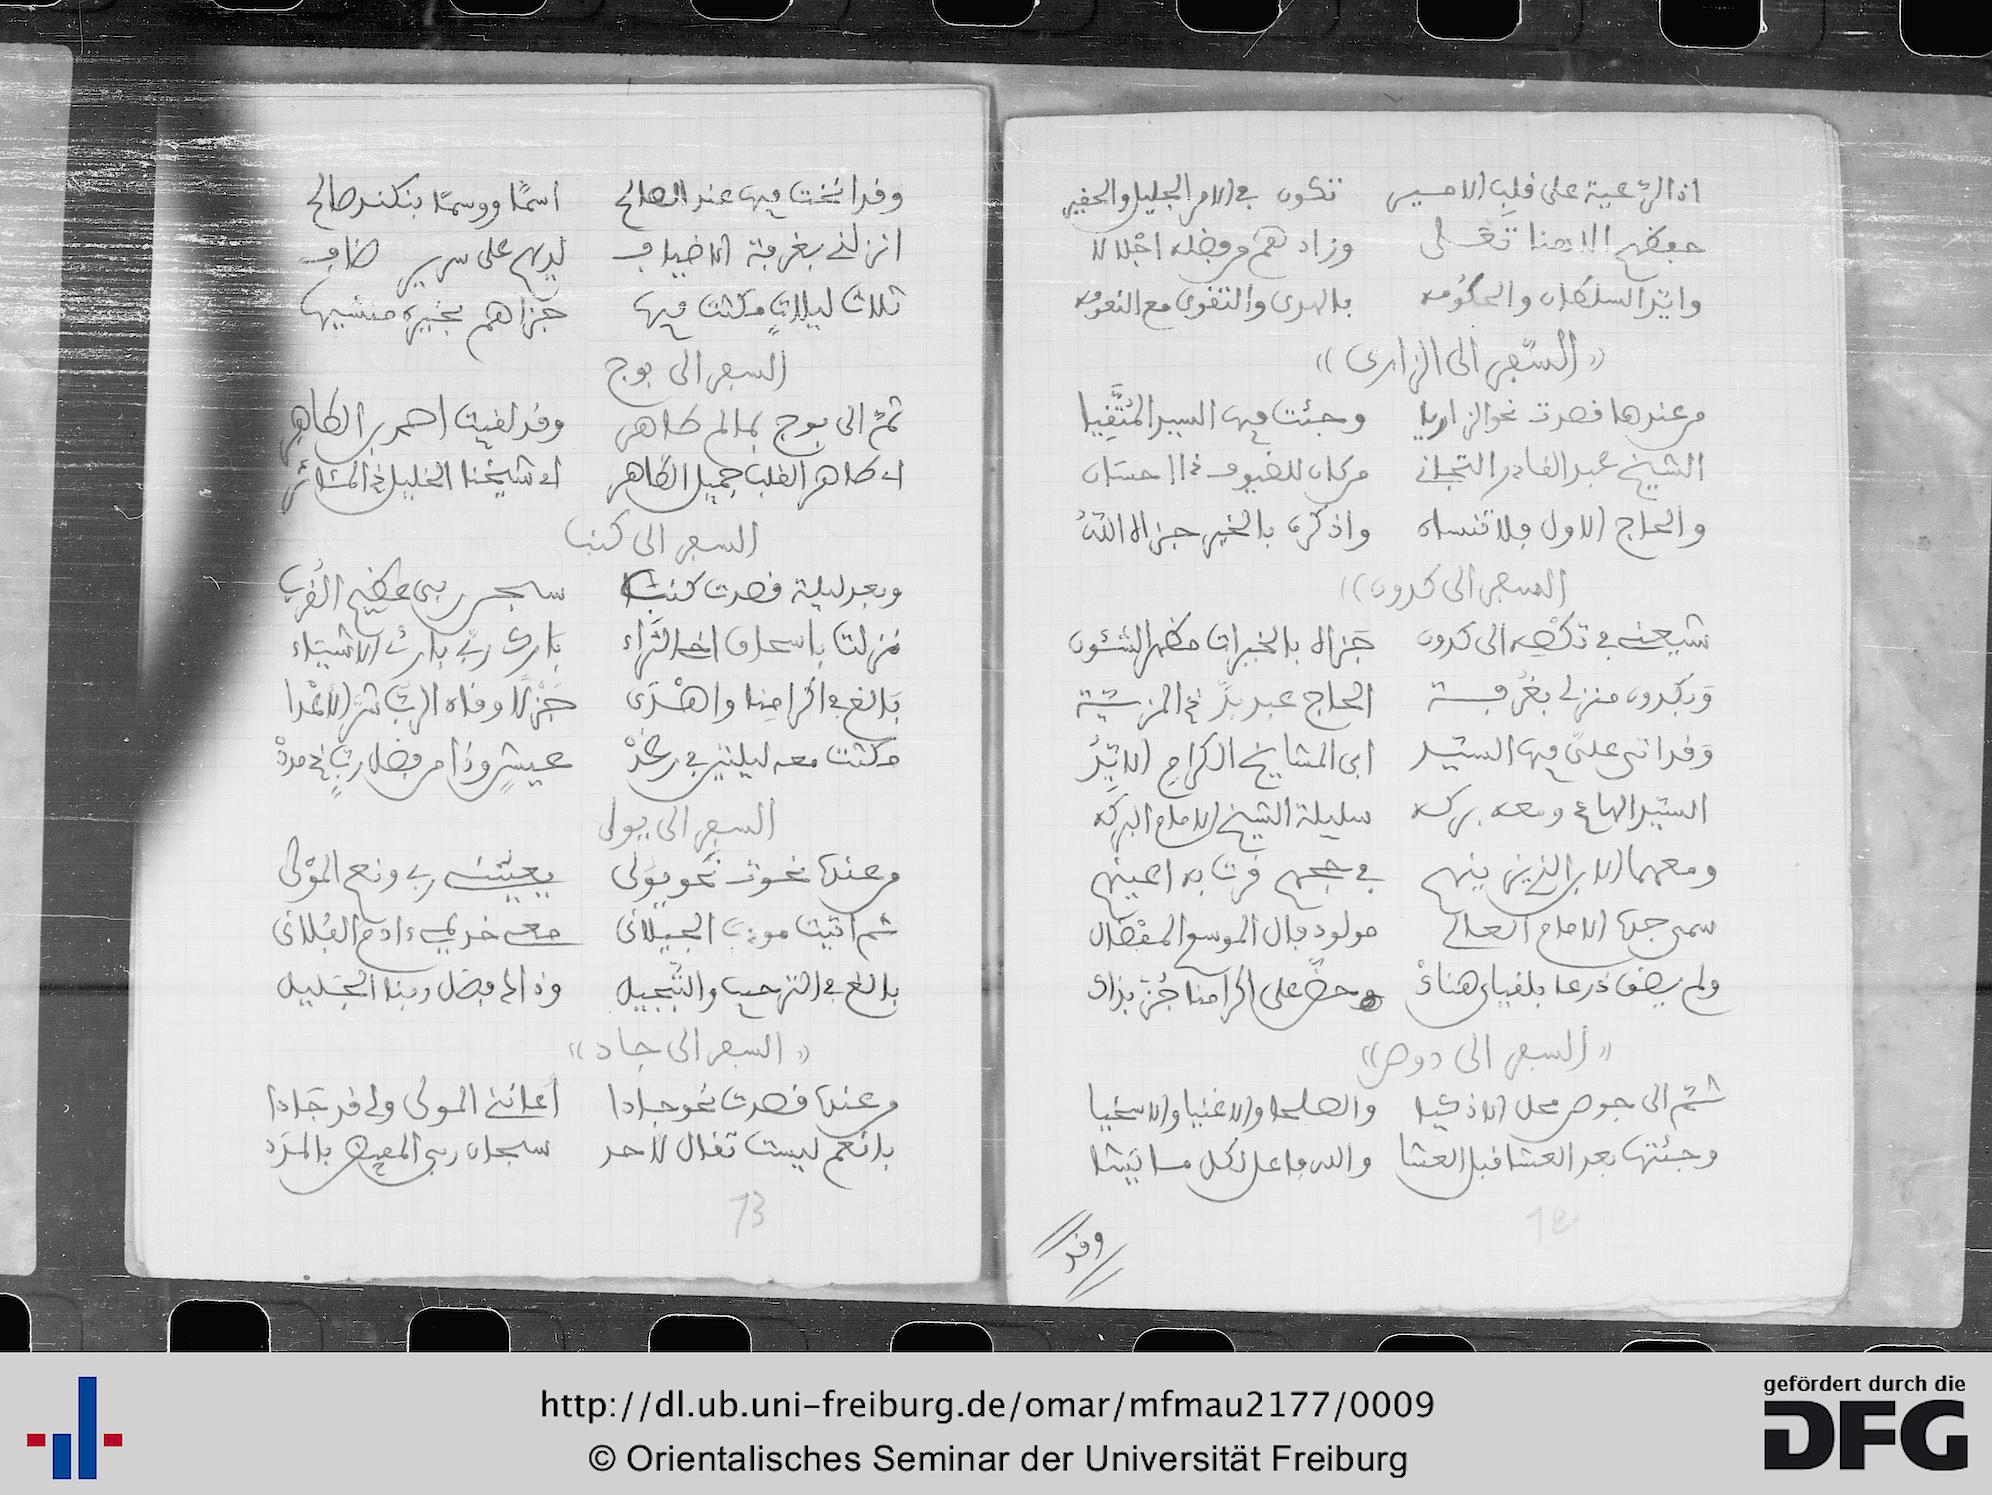 اذ الرعية على قلب الامير تكون في الامر الجليل والحقير
حفظهم الاهنا تعالى وزادهم من فضله اجلالا
وايد السلطان والحكومه بالهدى والتقوى مع النعومه
«السفر الى الزارى»
من عندها قصدت نحو الزاريا وجئت فيها السيد المتقيا
الشيخ عبد القادر التجانى من كان للضيوف ذا احسان
والحاج الاول فلا تنساه واذكره بالخير جزاه الله
السفر الى كدون»
شيعنى في تكسه الى كدون جزاه بالخيرات مظهر الشئون
وبكدون منزلى بغرفة الحاج عبد بد ذى المزية
وقد اتى على فيها السيد ابى المشايخ الكرام الايد
السيد الهاد ومعه بركه سليلة الشيخ الامام البركه
ومعهما الابن الذين بينهم في حجهم قرت به اعينهم
سمى جدها الامام العالى مولود فال الموسع المفضال
ولم يضق ذرعا بلقياى هناك وحض على اكرامنا جزى بذاك
«السفر الى دوص»
ثم الى جوص محل الاذكيا والصلحا والاغنيا والاسخيا
وجئتها بعد العشا قبل العشا والله فاعل لكل ما يشا
12
وقد
وقد انخت فيها عند الصالح اسما ووسما بنكند صالح
انزلنى بغرفة الاضياف لديهم على سرير ضاف
ثلاث ليلات مكثت فيها جزاهم بخيره منشيها
السفر الى بوج
ثم الى بوج بمالم طاهر وقد لقيت احمد بن الطاهر
اى طاهر القلب جميل الظاهر اى شيخنا الخليل ذى المئاثر
السفر الى كنبا
وبعد ليلة قصدت كنبا سهلن ربى عظيم القرب
نزلت باسحاق اخ الثراء بارك ربى بارئ الاشياء
بالغ في اكرامنا واهدى جزلا وقاه الرب شر الاعدا
مكثت معه ليلتين في رغد عيش وذا من فضل رب ذى مدد
السفر الى يولى
من عندها نحوت نحو يولى يعيننى ربى ونعم المولى
ثم اتيت مودب الجيلانى معى خديمى ءادم الفلانى
بالغ في الترحيب والتبجيل وذاك فضل ربنا الجليل
«السفر الى جاد»
من عندها قصدت نحو جادا اعاننى المولى ولى قد جادا
بانعم ليست تقال لاحد سبحان ربى المفيض بالمدد
13
http://dl.ub.uni-freiburg.de/omar/mfmau2177/0009
© Orientalisches Seminar der Universität Freiburg
gefördert durch die
DFG